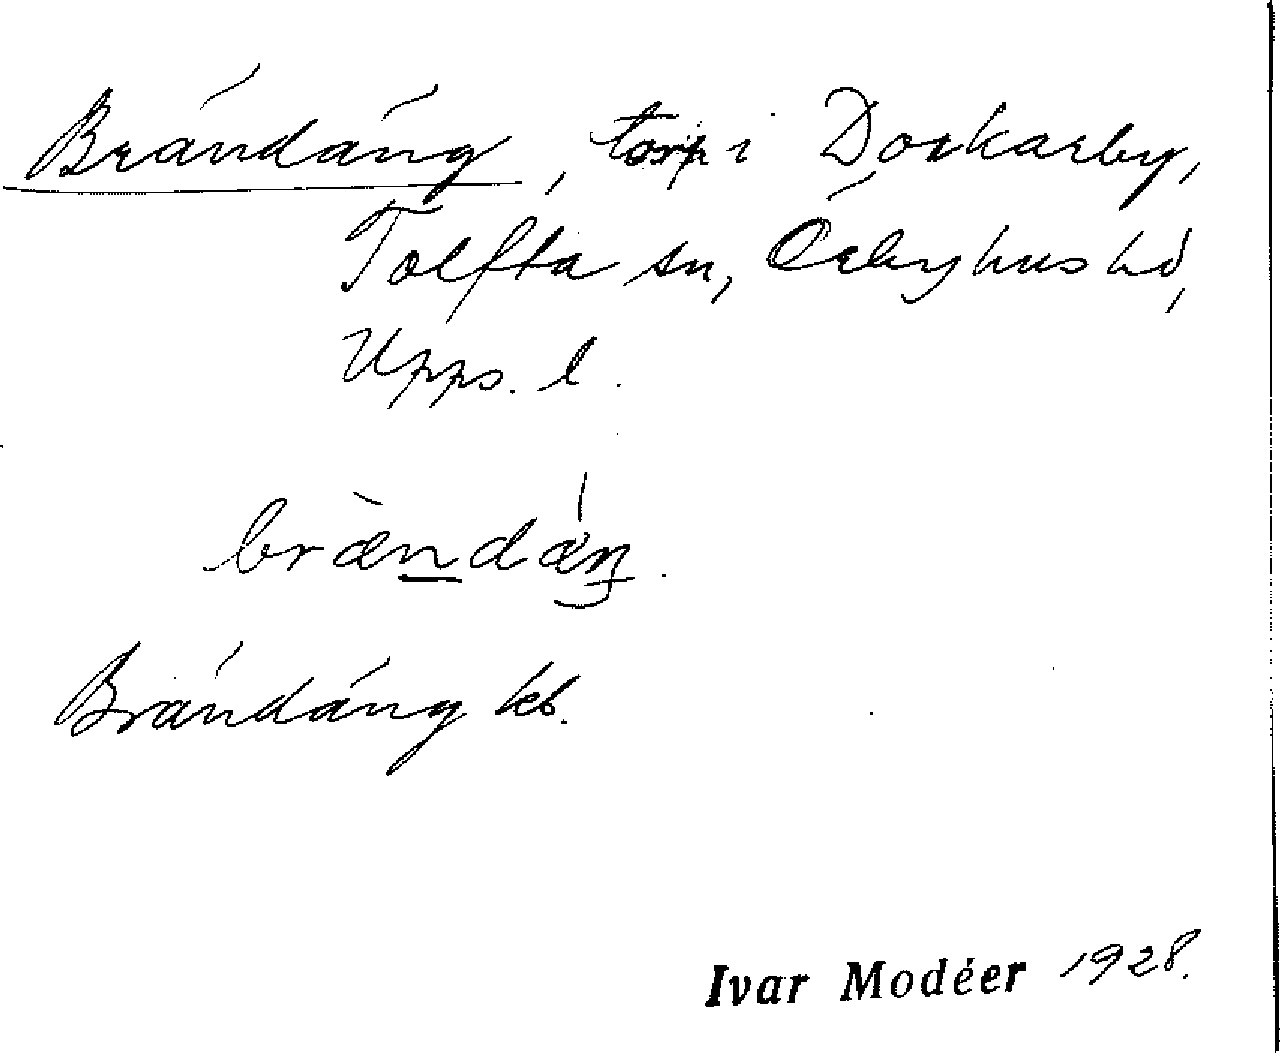 Brändäng, torp i Dorkarby,
Tolfta sn, Örbyhus hd,
Upps. l.
bræ̀n̲dæ̍ŋ.
Brändäng kb.
Ivar Modéer 1928.